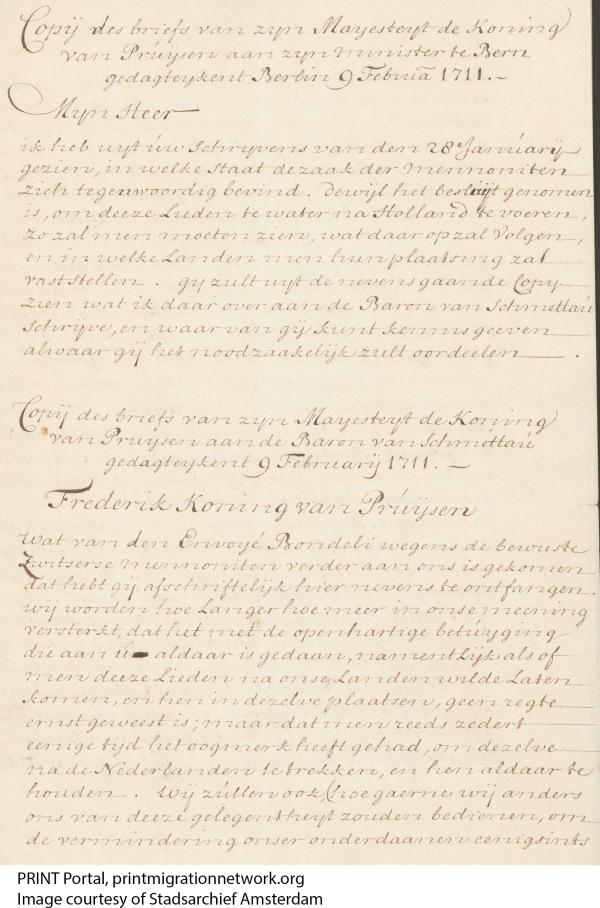 Copij des briefs van zyn Mayesteyt de Koning
van Prúÿsen aan zyn minister te Bern
gedagteykent Berlin 9 Februã 1711. –
Myn Heer
ik heb uyt úw schryvens van den 28e Janúarij
gezien, in welke staat de zaak der mennoniten
zich tegenwoordig bevind. Dewyl het beslúÿt genomen
is, om deeze Lieden te water na Holland te voeren,
zo zal men moeten zien, wat daar op zal volgen,
en in welke Landen men hun plaatsing zal
vast stellen. gij zult uyt de nevens gaande Copy
zien wat ik daar over aan de Baron van Schmettaú
schrijve, en waar van gij kunt kennis geeven
alwaar gij het noodzaakelijk zult oordeelen.
Copij des briefs van zyn Mayesteyt de Koning
van Pruysen aan de Baron van Schmettaú
gedagteykent 9 Februarij 1711. –
Frederik Koning van Prúÿsen
Wat van den Envoyé Bondeli wegens de bewuste
Zwitserse mennoniten verder aan ons is gekomen
dat hebt gij afschriftelijk hier nevens te ontfangen.
wij worden hoe Langer hoe meer in onse meening
versterkt, dat het met de openhartige betúÿging
die aan ú aldaar is gedaan, namentlijk als of
men deeze Lieden na onse Landen wilde Laten
komen, en hen in dezelve plaatsen, geen regte
ernst geweest is; maar dat men reeds zedert
eenige tyd het oogmerk heeft gehad, om dezelve
na de Nederlanden te trekken, en hen aldaar te
houden. Wij zúllen ook (hoe gaerne wij anders
ons van deeze gelegentheyt zouden bedienen, om
de vermindering onser onderdaanen eenigsints
PRINT Portal, printmigrationnetwork.org
Image courtesy of Stadsarchief Amsterdam